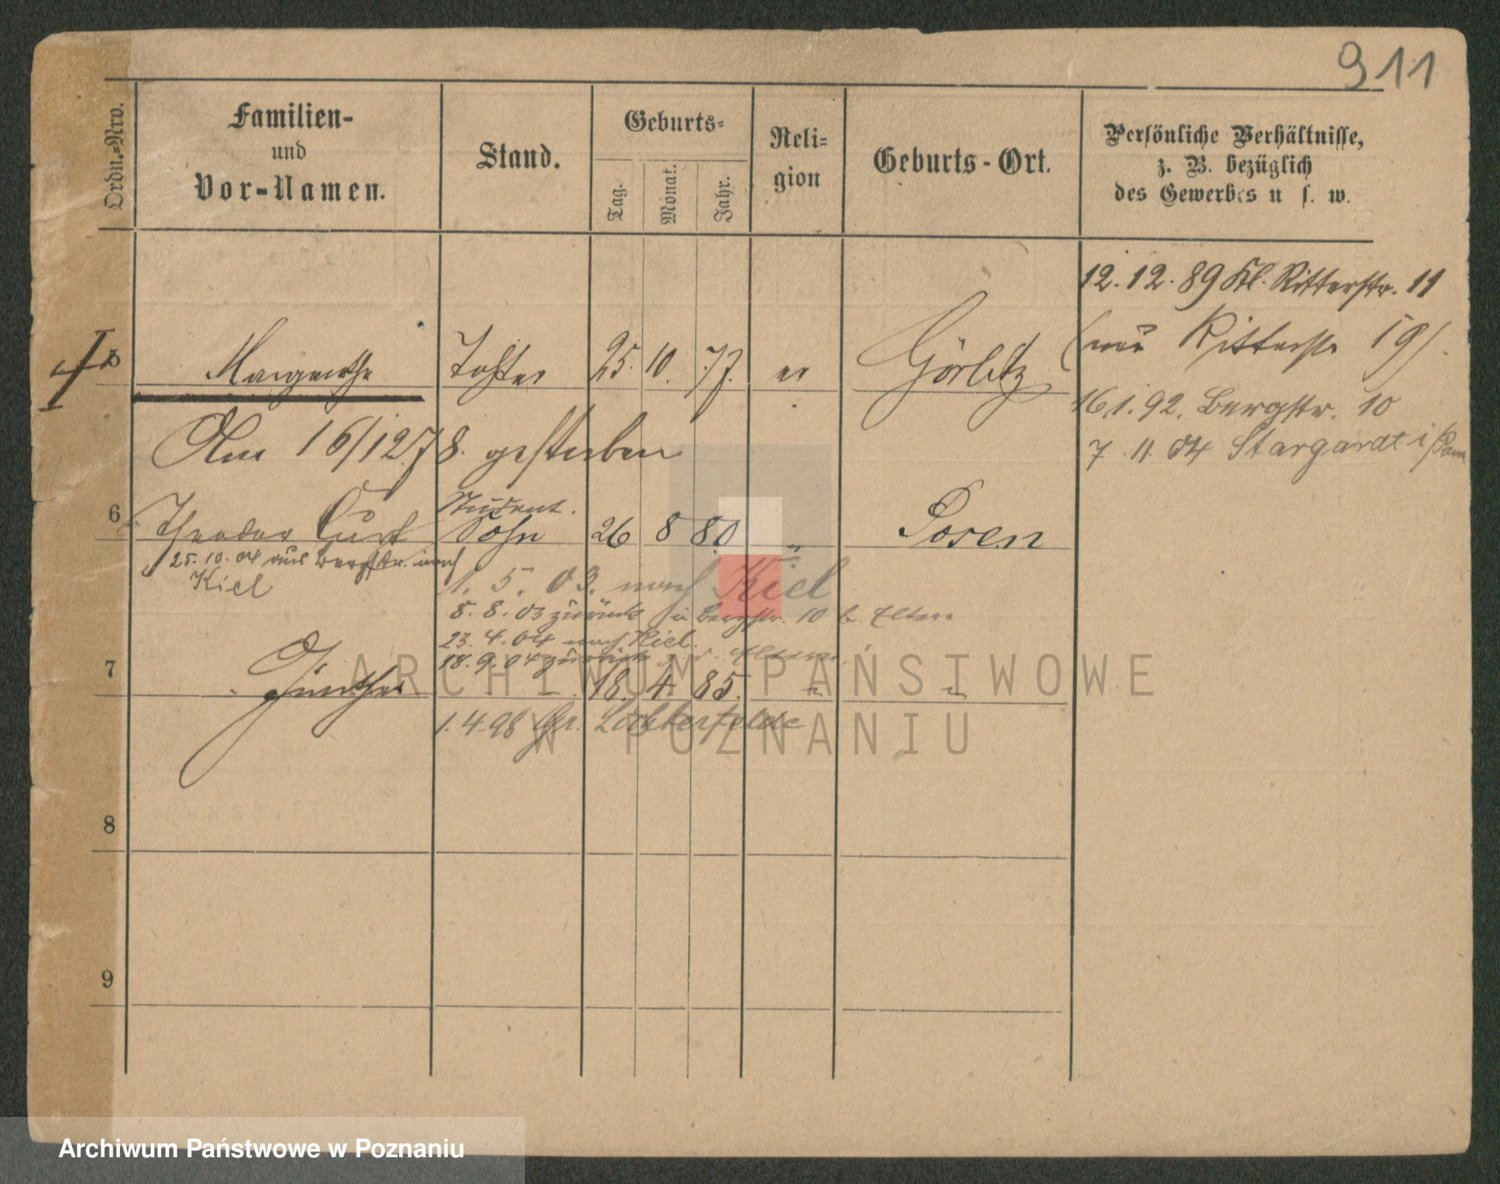 911
Ordn.-Nro.
Familien-
und
Vor-Namen.
Stand.
Geburts-
Tag.
Monat.
Jahr.
Reli-
gion
Geburts-Ort.
Persönliche Verhältnisse,
z. B. bezüglich
des Gewerbes u. s. w.
12.12.89 Kl. Ritterstr. 11
(nun Ritterstr 19).
16.1.92. Bergstr. 10
7.11.04 Stargardt i/Pom
5 Margarethe Tochter 25. 10. 77. ev Görlitz
Am 16/12 78. gestorben
Student.
6 Theodor Curt Sohn 26 8 80 " Posen
25.10.04 aus Bergstr. nach
Kiel
1. 5. 03. nach Kiel
5.8.03 zurück Bergstr. 10 b. Eltern
23.4.04 nach Kiel.
18.9.04 zurück Eltern
7 Günther 18. 4. 85. " "
1.4.98 Gr. Lichterfelde
8
9
ARCHIWUM PAŃSTWOWE
W POZNANIU
Archiwum Państwowe w Poznaniu